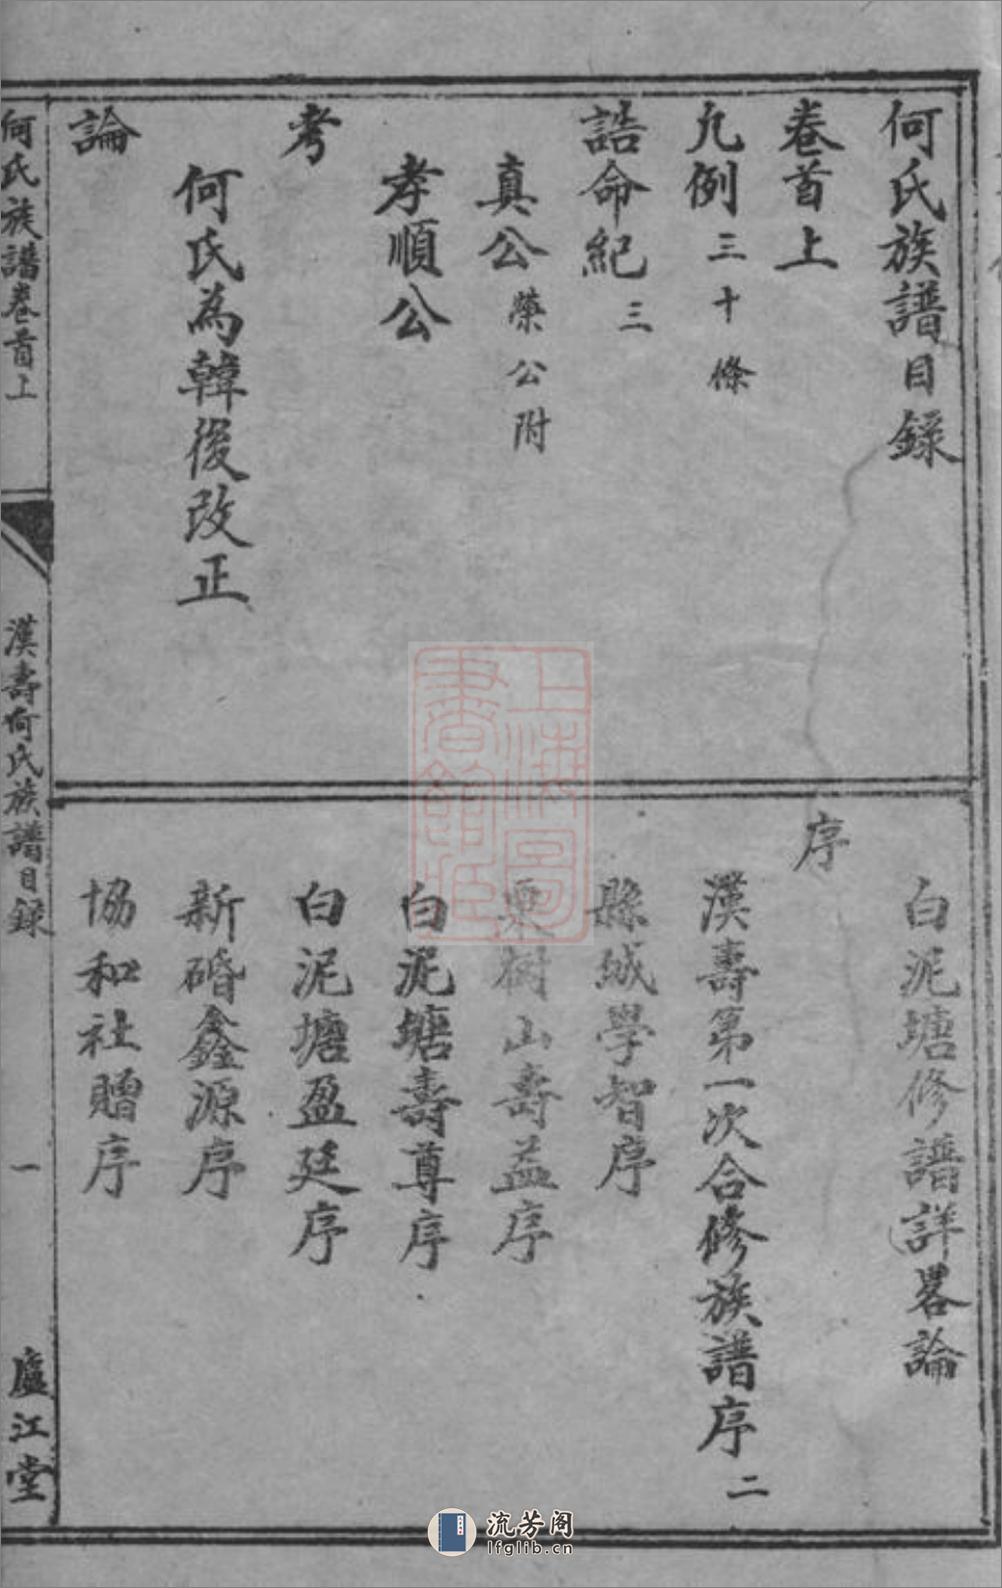 何氏族譜目錄
卷首上
凡例三十條
誥命紀三
真公榮公附
孝順公
考
何氏為韓後改正
論
白泥塘修譜詳畧論
序
漢壽第一次合修族譜序二
縣城學智序
栗樹山壽益序
白泥塘壽尊序
白泥塘盈廷序
新硘鑫源序
協和社贈序
何氏族譜卷首上
漢壽何氏族譜目錄
一
廬江堂
上海圖
書館藏
流芳阁
lfglib.cn